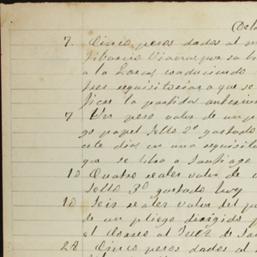 Octu
7. Cinco pesos dados al
Liborio Viarra por su
a la
tres requisitorias a que se
fiere la partida anterior
7 Un peso valor de un p
go papel sello 2º gastado
este dia en una requisito
que se libro a Santiago
10 Cuatro reales valor de
sello 3º gastado hoy
10 Seis reales valor del
de un pliego dirigido p
el correo al Juez de
22 Cinco pesos dados al